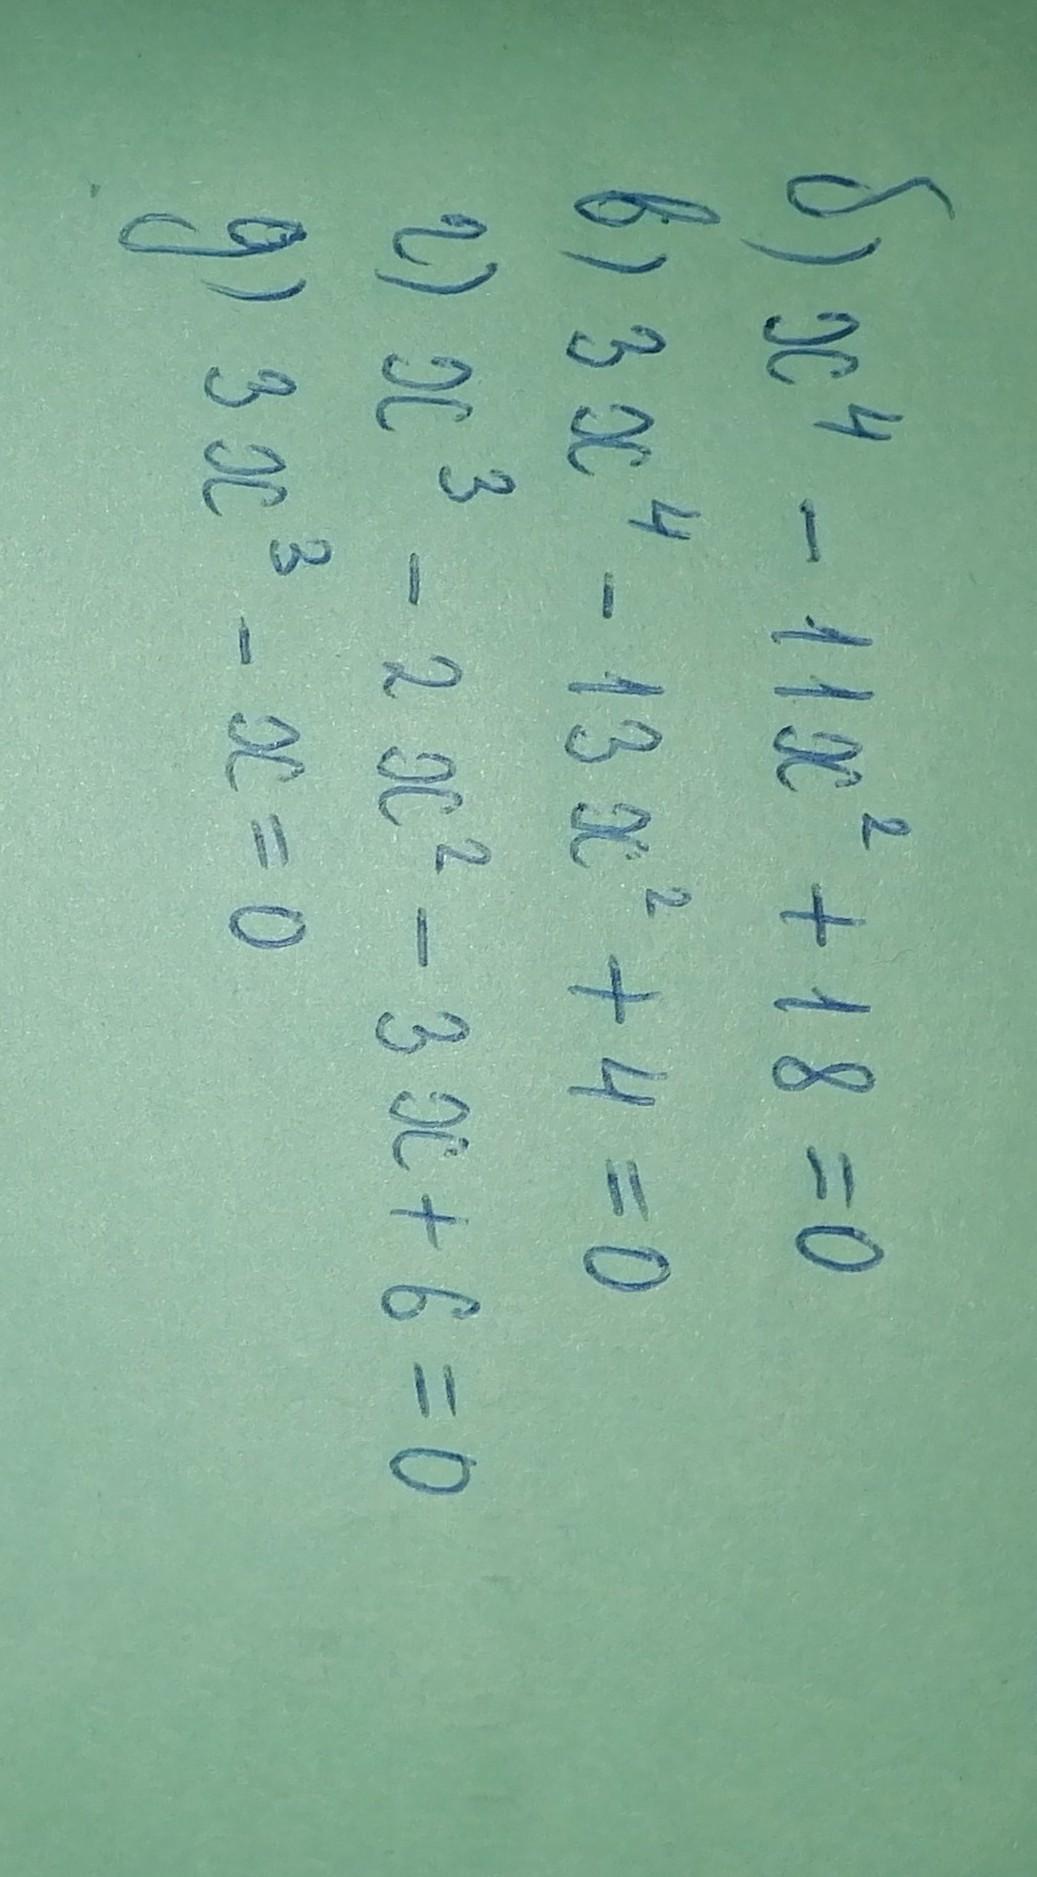 б) x⁴ - 11x² + 18 = 0
в) 3x⁴ - 13x² + 4 = 0
г) x³ - 2x² - 3x + 6 = 0
д) 3x³ - x = 0